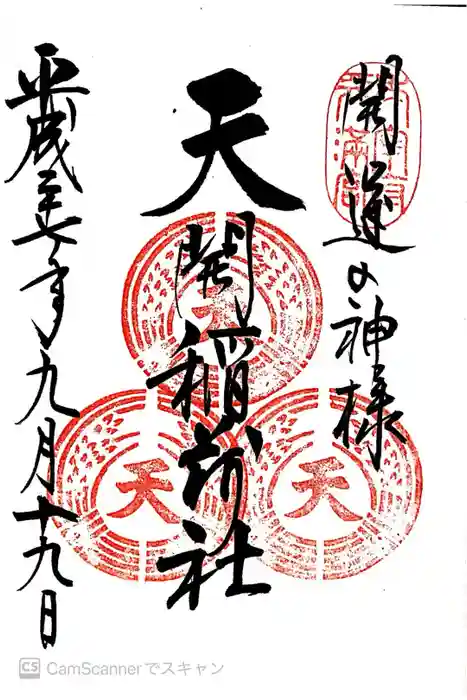 開運の神様
天開稲荷社
平成二十七年九月十九日
天
天
CS CamScannerでスキャン